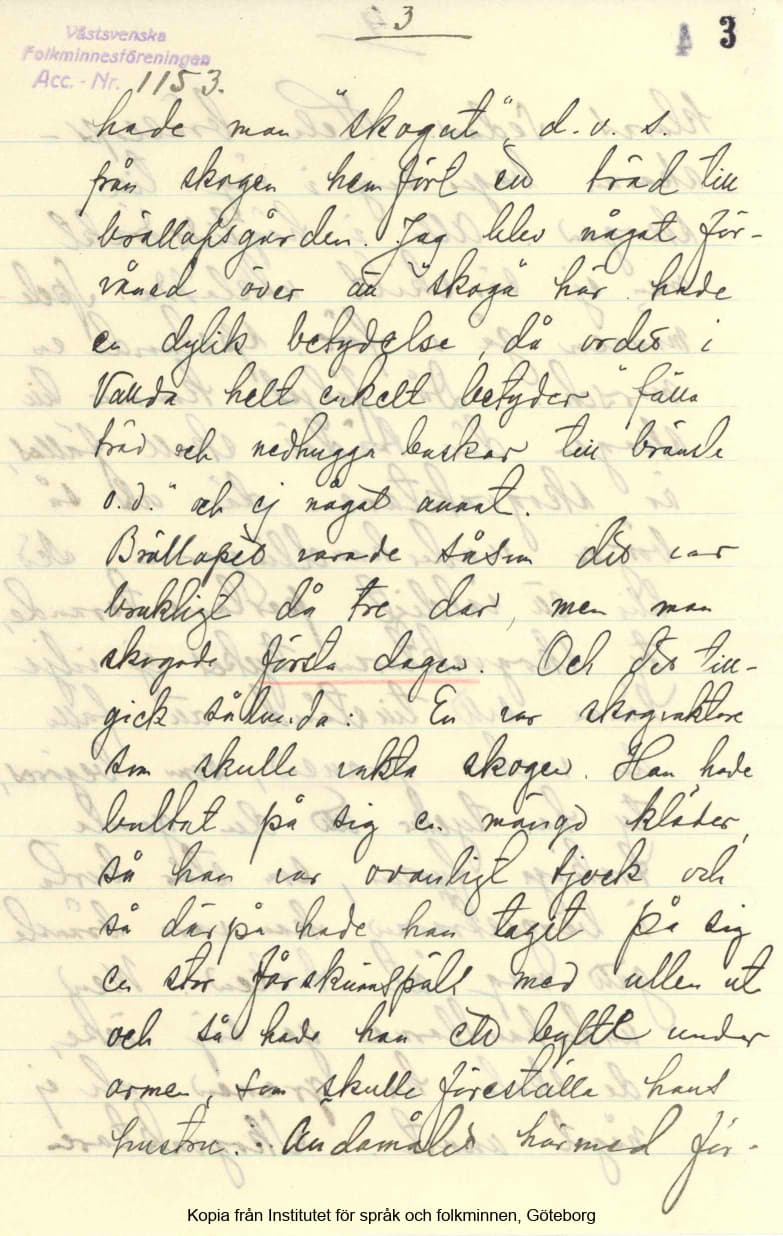 3
3
Västsvenska
Folkminnesföreningen
Acc. - Nr. 1153.
hade man "skogat", d. v. s.
från skogen hemfört ett träd till
bröllopsgården. Jag blev något för-
vånad över att "skoga" här hade
en dylik betydelse, då ordet i
Vallda helt enkelt betyder "fälla
träd och nedhugga buskar till bränsle
o. d." och ej något annat.
Bröllopet varade såsom det var
brukligt då tre dar, men man
skogade första dagen. Och det till-
gick sålunda: En var skogvaktare
som skulle vakta skogen. Han hade
bultat på sig en mängd kläder,
så han var ovanligt tjock och
så därpå hade han tagit på sig
en stor fårskinnspäls med ullen ut
och så hade han ett bylte under
armen, som skulle föreställa hans
hustru. Ändamålet härmed för-
Kopia från Institutet för språk och folkminnen, Göteborg